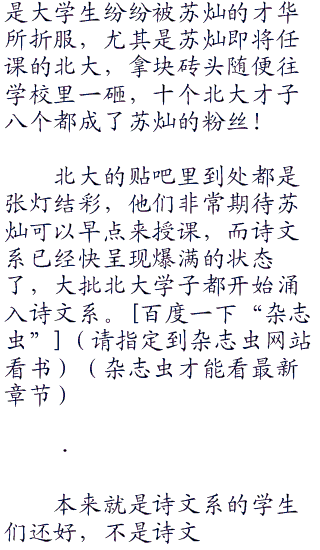 是大学生纷纷被苏灿的才华
所折服，尤其是苏灿即将任
课的北大，拿块砖头随便往
学校里一砸，十个北大才子
八个都成了苏灿的粉丝！
北大的贴吧里到处都是
张灯结彩，他们非常期待苏
灿可以早点来授课，而诗文
系已经快呈现爆满的状态
了，大批北大学子都开始涌
入诗文系。[百度一下“杂志
虫”]（请指定到杂志虫网站
看书）（杂志虫才能看最新
章节）
.
本来就是诗文系的学生
们还好，不是诗文